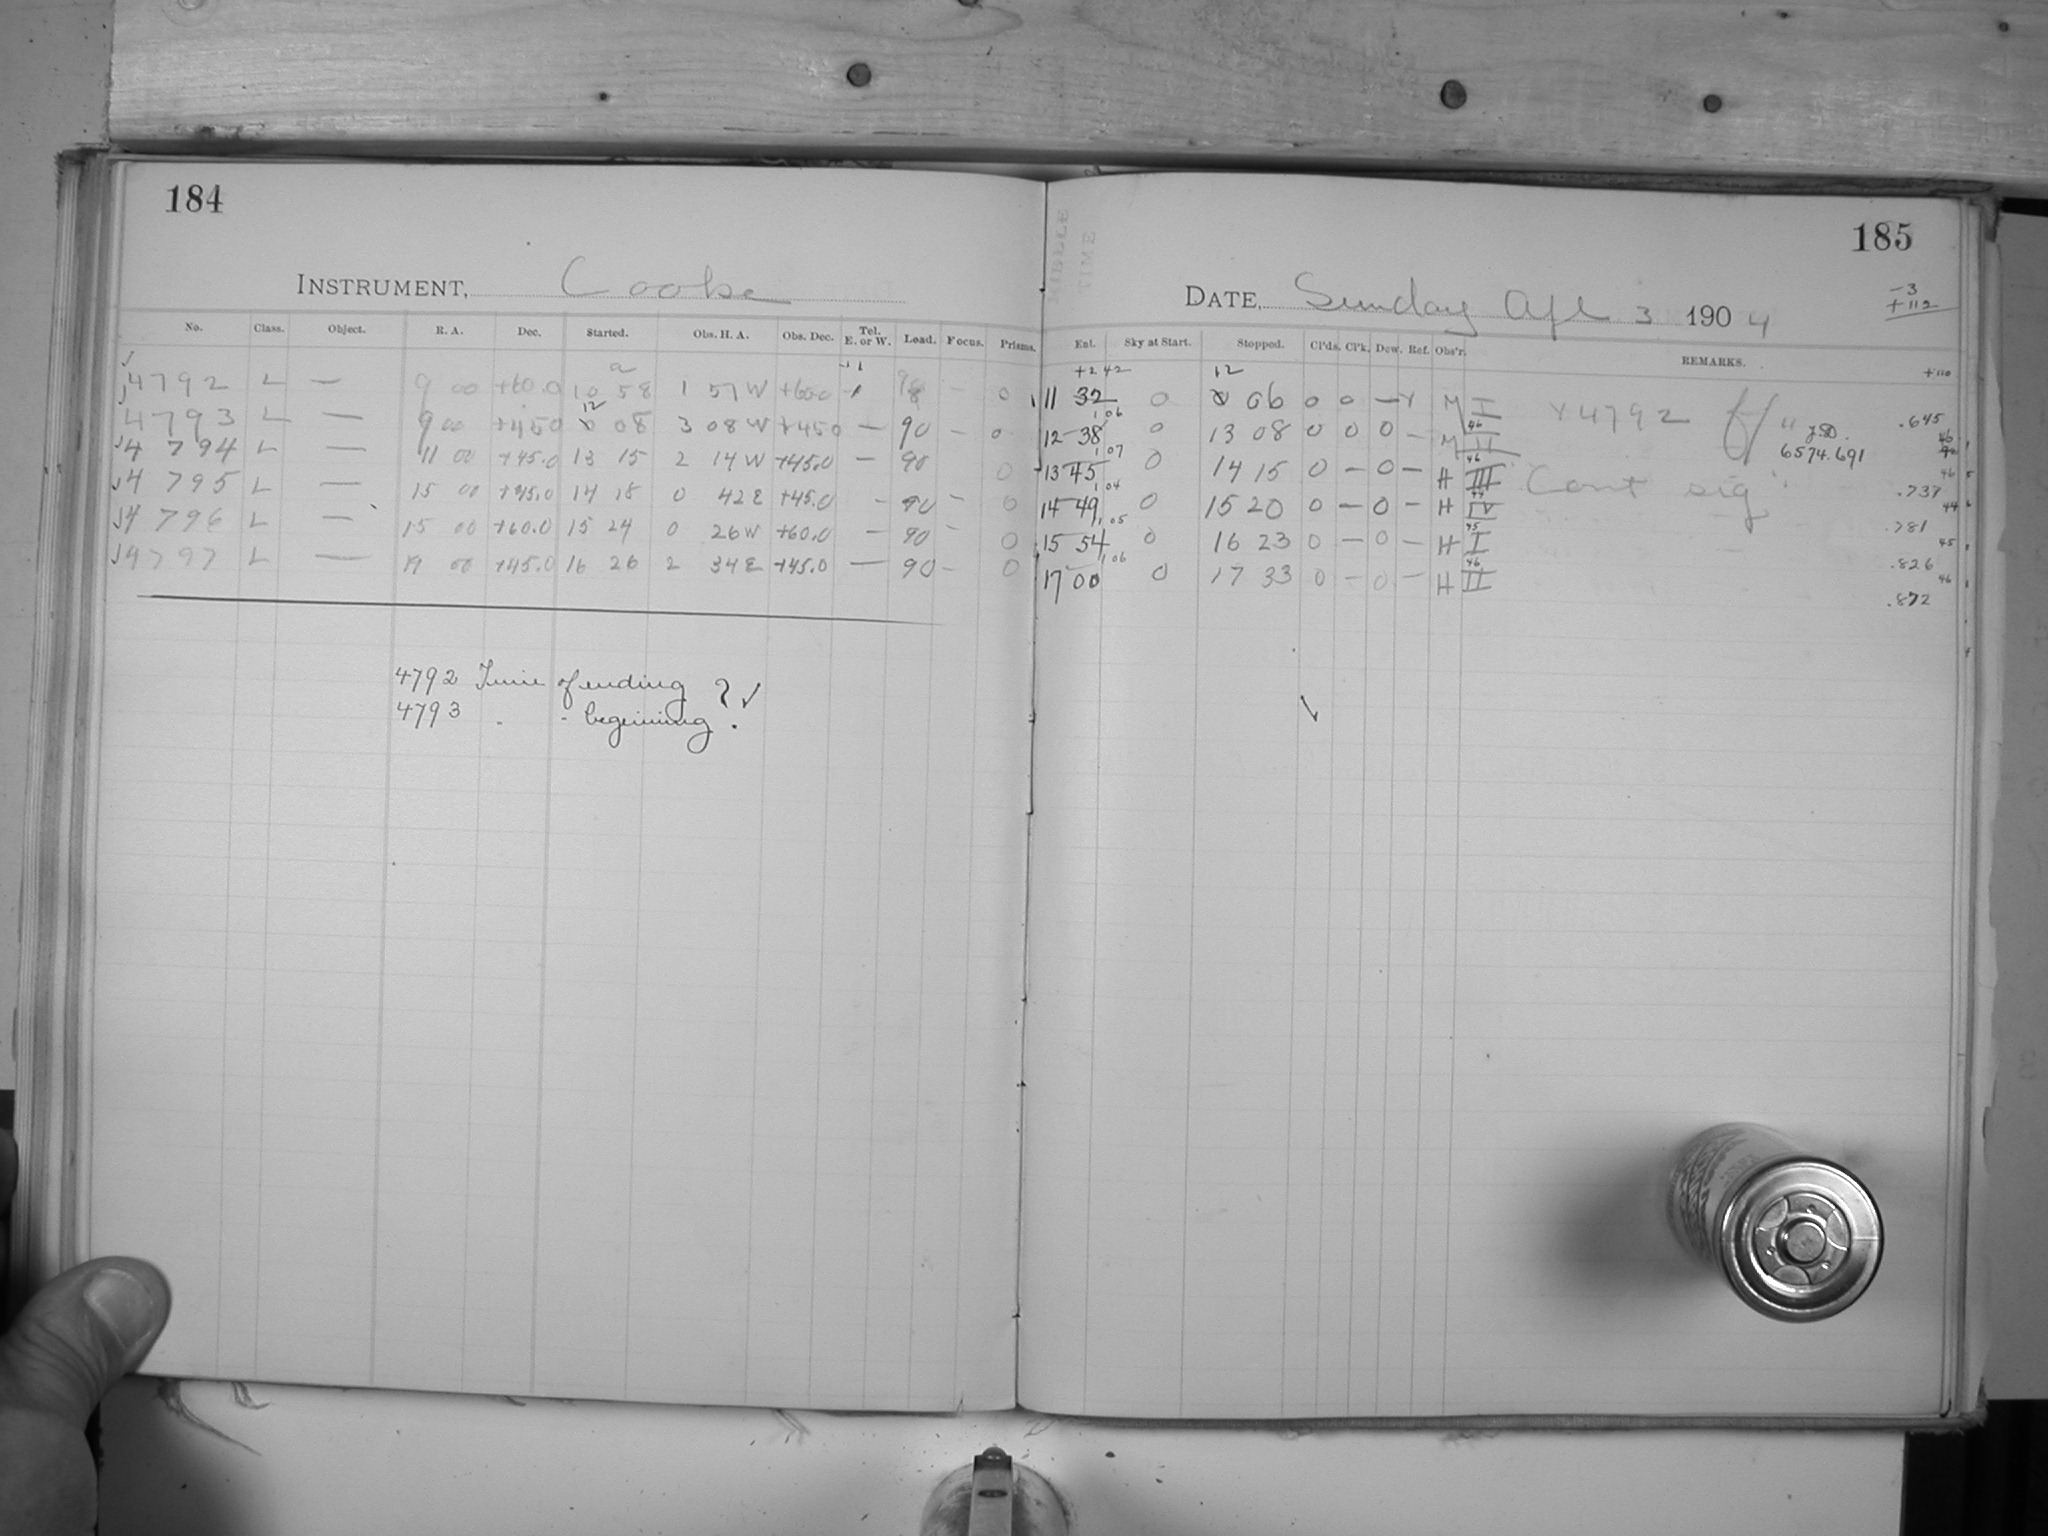 184
INSTRUMENT, Cooke
No. Class. Object. R. A. Dec. Started. Obs. H. A. Obs. Dec. Tel. E. or W. Load. Focus. Prisms.
4792 L — 9 00 +60.0 10 58 1 57 W +60.0 98 — 0
4793 L — 9 00 +45.0 12 08 3 08 W +45.0 — 90 — 0
4794 L — 11 00 +45.0 13 15 2 14 W +45.0 — 90 0
4795 L — 15 00 +45.0 14 18 0 42 E +45.0 - 90 - 0
4796 L — 15 00 +60.0 15 24 0 26 W +60.0 — 90 - 0
4797 L — 19 00 +45.0 16 26 2 34 E +45.0 — 90 - 0
4792 Time of ending ? ✓
4793 . - beginning .
185
MIDDLE TIME
DATE, Sunday Apl 3 1904
-3
+112
Ent. Sky at Start. Stopped. Cl'ds. Cl'k. Dew. Ref. Obs'r. REMARKS.
+2 42 12 +110
11 32 0 06 0 0 — M I 4792 " J.D. .645
1 06 46
12 38 0 13 08 0 0 0 — M II 6574.691
1 07 46
13 45 0 14 15 0 — 0 — H III Cont sig" .737
1 04 44
14 49 0 15 20 0 — 0 - H IV .781
1 05 45
15 54 0 16 23 0 — 0 — H I .826
1 06 46
17 00 0 17 33 0 - 0 — H II .872
✓